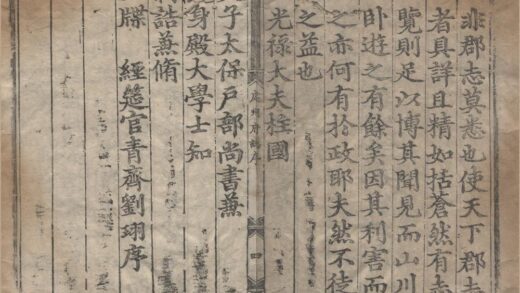 非郡志莫悉也使天下郡志
者具詳且精如括蒼然有志
覽則足以博其聞見而山川
卧遊之有餘矣因其利害而
之亦何有扵政耶夫然不徒
之益也
光禄太夫柱國
四
子太保戶部尚書兼
身殿大學士知
誥兼脩
牒 經筵官青齊劉珝序